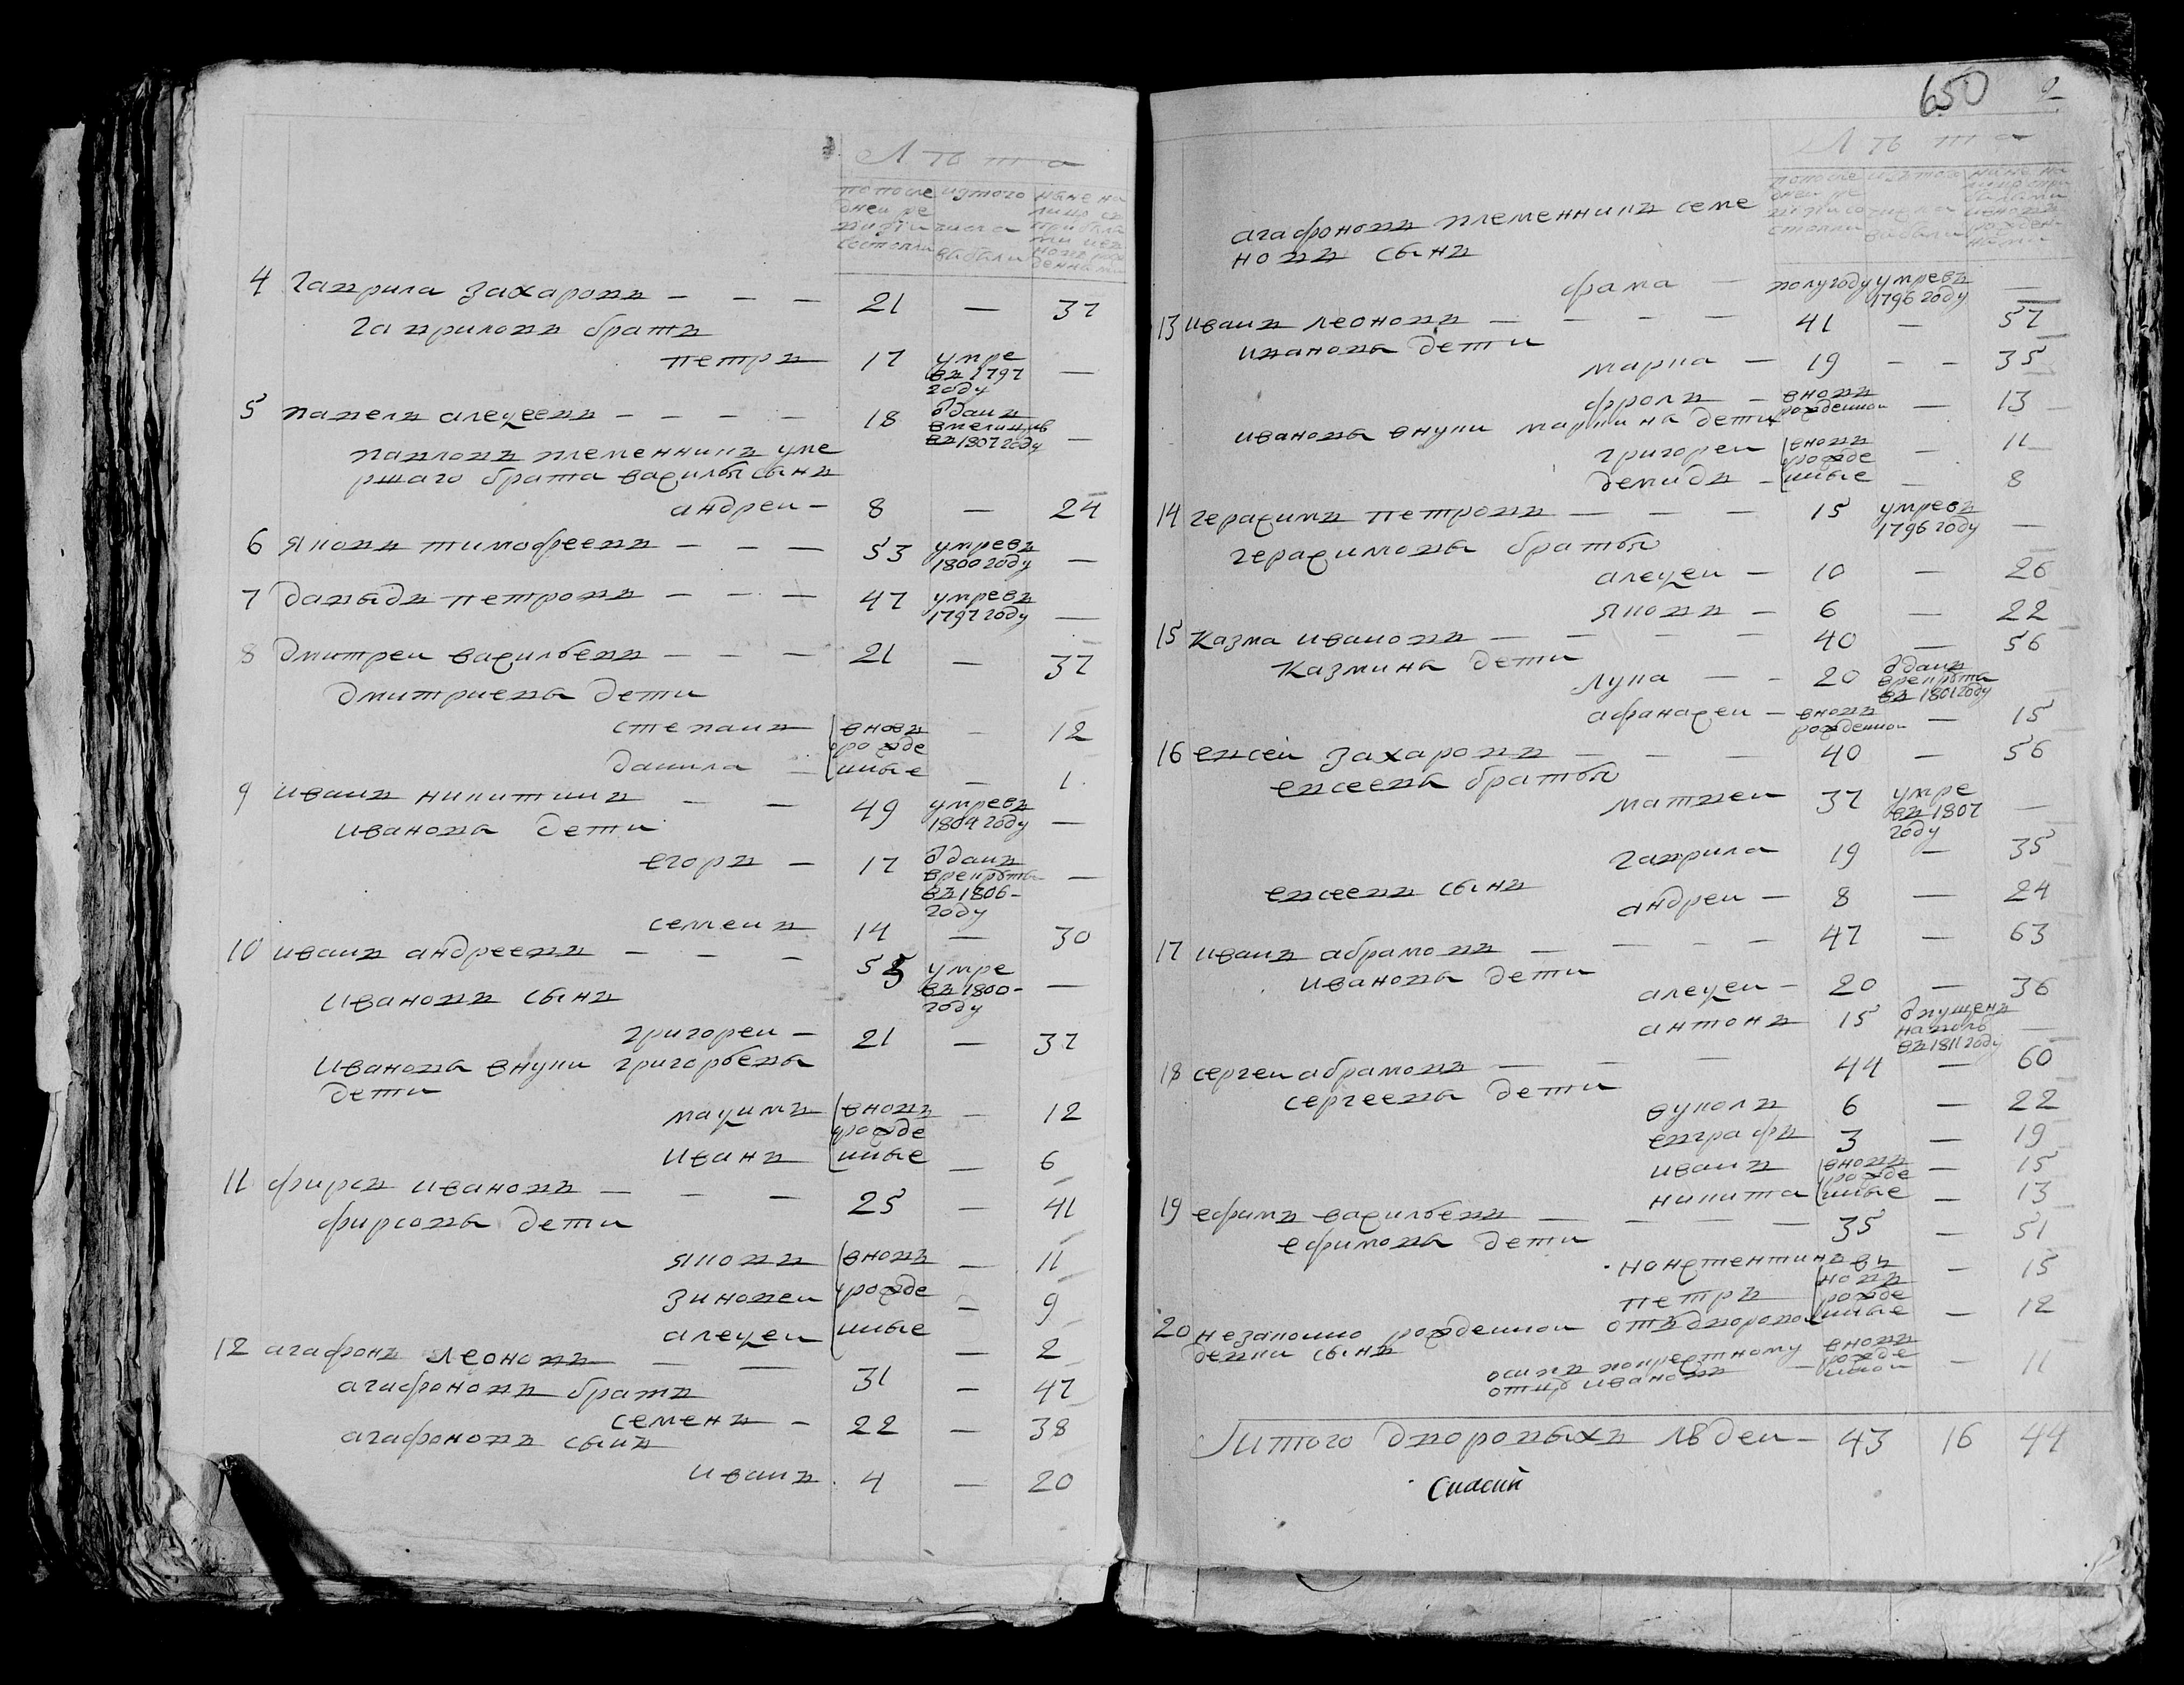 Лѣта
по после
дней ре
визiи
состояли
изтого
числа
выбыли
ныне на
лицо съ
прибылы
ми и внов рож
денными
4 Гаврила Захаровъ — — — 21 — 37
Гавриловъ братъ
Петръ 17 умре въ 1797 году —
5 Павелъ Алексеевъ — — — — 18 одданъ вмелицию въ 1807 году —
Павловъ племенникъ уме
ршаго брата Василья сынъ
Андреи — 8 — 24
6 Яковъ Тимофеевъ — — — 53 умре въ 1800 году —
7 Давыдъ Петровъ — — — 47 умре въ 1797 году —
8 Дмитреи Васильевъ — — — 21 — 37
Дмитриевы дети
Степанъ вновь — 12
рожде
Данила — нные — 1
9 Иванъ Никитинъ — — 49 умре въ 1804 году —
Ивановы дети
Егоръ — 17 одданъ врекруты въ 1806 году —
Семенъ 14 — 30
10 Иванъ Андреевъ — — — 55 умре въ 1800 году —
Ивановъ сынъ
Григореи — 21 — 37
Ивановы внуки Григорьевы
дети
Максимъ вновь — 12
рожде
Иванъ нные — 6
11 Фирсъ Ивановъ — — — 25 — 41
Фирсовы дети
Яковъ вновь — 11
Зиновеи рожде — 9
Алексеи нные — 2
12 Агафонъ Леоновъ — — 31 — 47
Агафоновъ братъ
Семенъ — 22 — 38
Агафоновъ сынъ
Иванъ 4 — 20
650 2
Лѣта
Агафоновъ племенникъ Семе
новъ сынъ
Фама — полугоду умре въ 1796 году —
13 Иванъ Леоновъ — — — — 41 — 57
Ивановы дети
Марка — 19 — — 35
Фролъ — вновь рожденнои — 13
Ивановы внуки Маркины дети
Григореи вновь — 11
рожде
Демидъ — нные — 8
14 Герасимъ Петровъ — — — 15 умре въ 1796 году —
Герасимовы братья
Алексеи — 10 — 26
Яковъ — 6 — 22
15 Казма Ивановъ — — — — 40 — 56
Казмины дети
Лука — — 20 одданъ врекруты въ 1801 году
Афанасеи — вновь рожденнои — 15
16 Евсеи Захаровъ — — — 40 — 56
Евсеевы братья
Матвеи 37 умре въ 1807 году —
Гаврила 19 — 35
Евсеевъ сынъ
Андреи — 8 — 24
17 Иванъ Абрамовъ — — — — 47 — 63
Ивановы дети
Алексеи — 20 — 36
Антонъ 15 опущенъ наволю въ 1811 году —
18 Сергеи Абрамовъ — — — 44 — 60
Сергеевы дети
Вуколъ 6 — 22
Евграфъ 3 — 19
Иванъ вновь — 15
рожде
Никита нные — 13
19 Ефимъ Васильевъ — — — — 35 — 51
Ефимовы дети
Констентинъ въ
новь — 15
Петръ рожде
нные — 12
20 Незаконно рожденнои отъ дворовои
девки сынъ
Осипъ покрестному вновь
отцу Ивановъ — рожде
нной — 11
Итого дворовыхъ людеи — 43 16 44